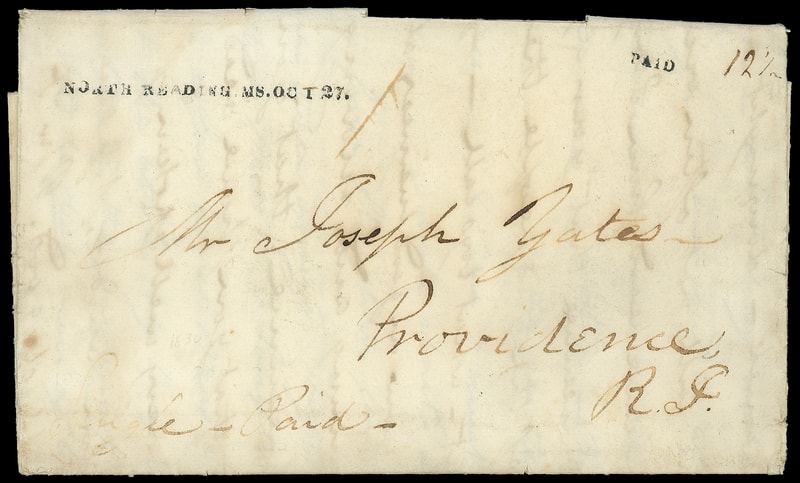 NORTH READING MS. OCT 27.
PAID
12½
Mr Joseph Yates
Providence,
R.I.
Single - Paid -